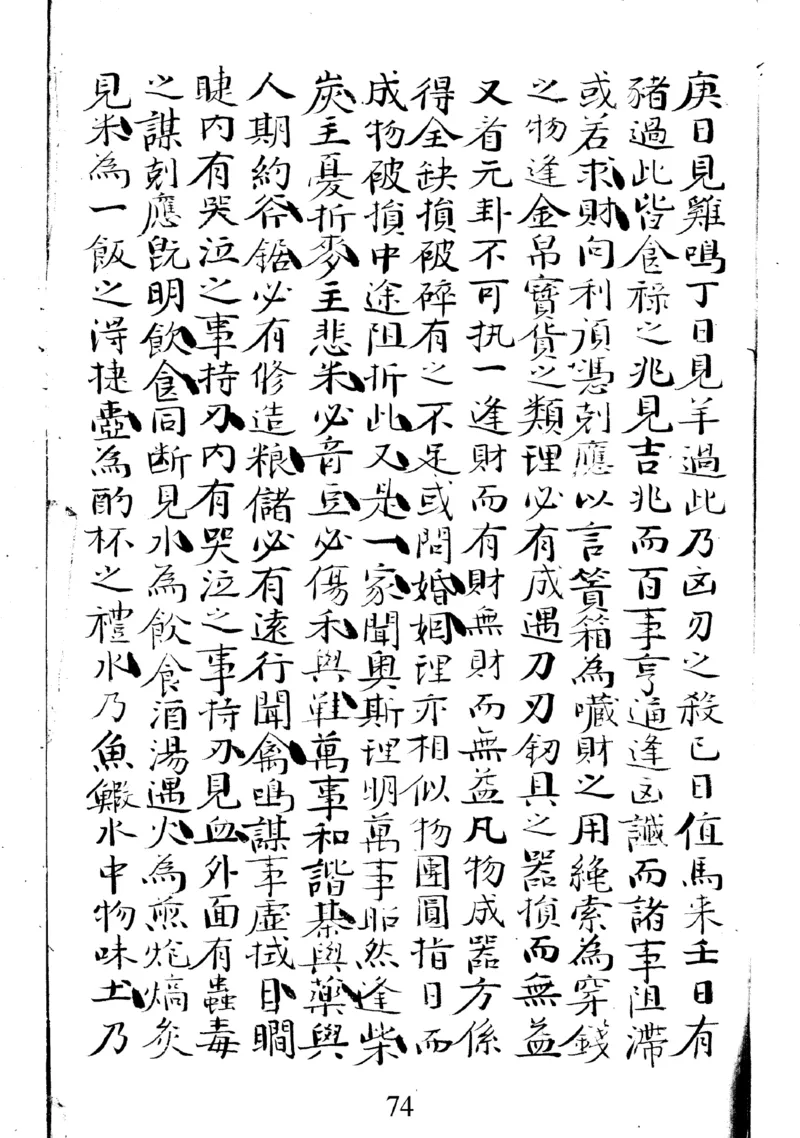 庚日見雞鳴丁日見羊過此乃凶刃之殺已日值馬来壬日有
豬過此皆食祿之兆見吉兆而百事亨通逢凶讖而諸事阻滯
或若求財向利須憑剋應以言簣箱為嚈財之用繩索為穿錢
之物逢金帛寳貨之類理必有成遇刀刃釰具之器損而無益
又看元卦不可执一逢財而有財無財而無益凡物成器方係
得全缺損破碎有之不足或問婚姻理亦相似物團圓指日而
成物破損中途阻折此又是一家聞奥斯理明萬事昭然逢柴
炭主憂折麥主悲米必音豆必傷禾與鞋萬事和諧棊與藥與
人期約斧鋸必有修造粮儲必有遠行聞禽鳴謀事虛拭目瞷
睫内有哭泣之事持刃内有哭泣之事持刃見血外面有蟲毒
之謀剋應旣明飲食同断見水為飲食酒湯遇火為煎炮熇炙
見米為一飯之淂捷壺為酌杯之禮水乃魚鰕水中物味土乃
74